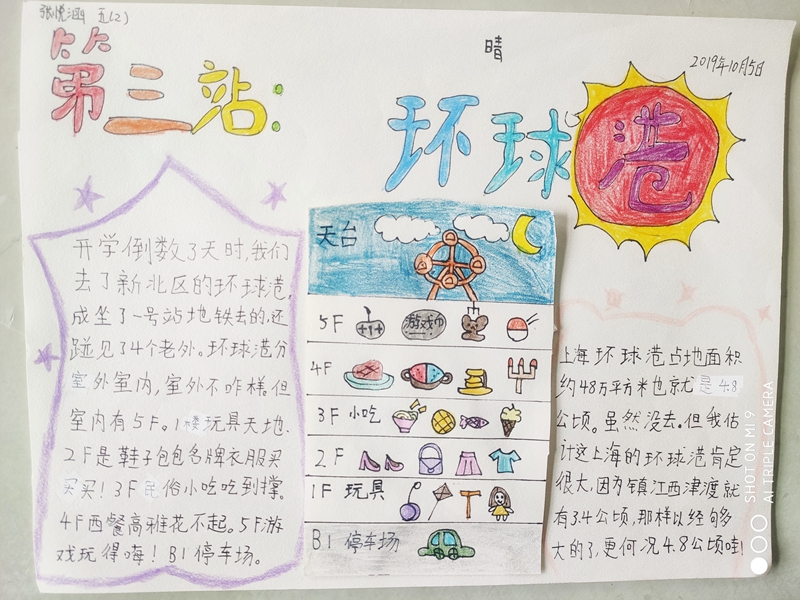 张悦涵 五(2)
晴
2019年10月5日
第三站:
环球港
开学倒数3天时,我们
去了新北区的环球港,
成坐了一号站地铁去的,还
碰见了4个老外。环球港分
室外室内,室外不咋样。但
室内有5F。1楼玩具天地.
2F是鞋子包包名牌衣服买
买买!3F民俗小吃吃到撑。
4F西餐高雅花不起。5F游
戏玩得嗨!B1停车场。
天台
5F 游戏币
4F
3F 小吃
2F
1F 玩具
B1 停车场
上海环球港占地面积
约48万平方米也就是48
公顷。虽然没去。但我估
计这上海的环球港肯定
很大,因为镇江西津渡就
有3.4公顷,那样以经够
大的了,更何况4.8公顷哇!
SHOT ON MI 9
AI TRIPLE CAMERA